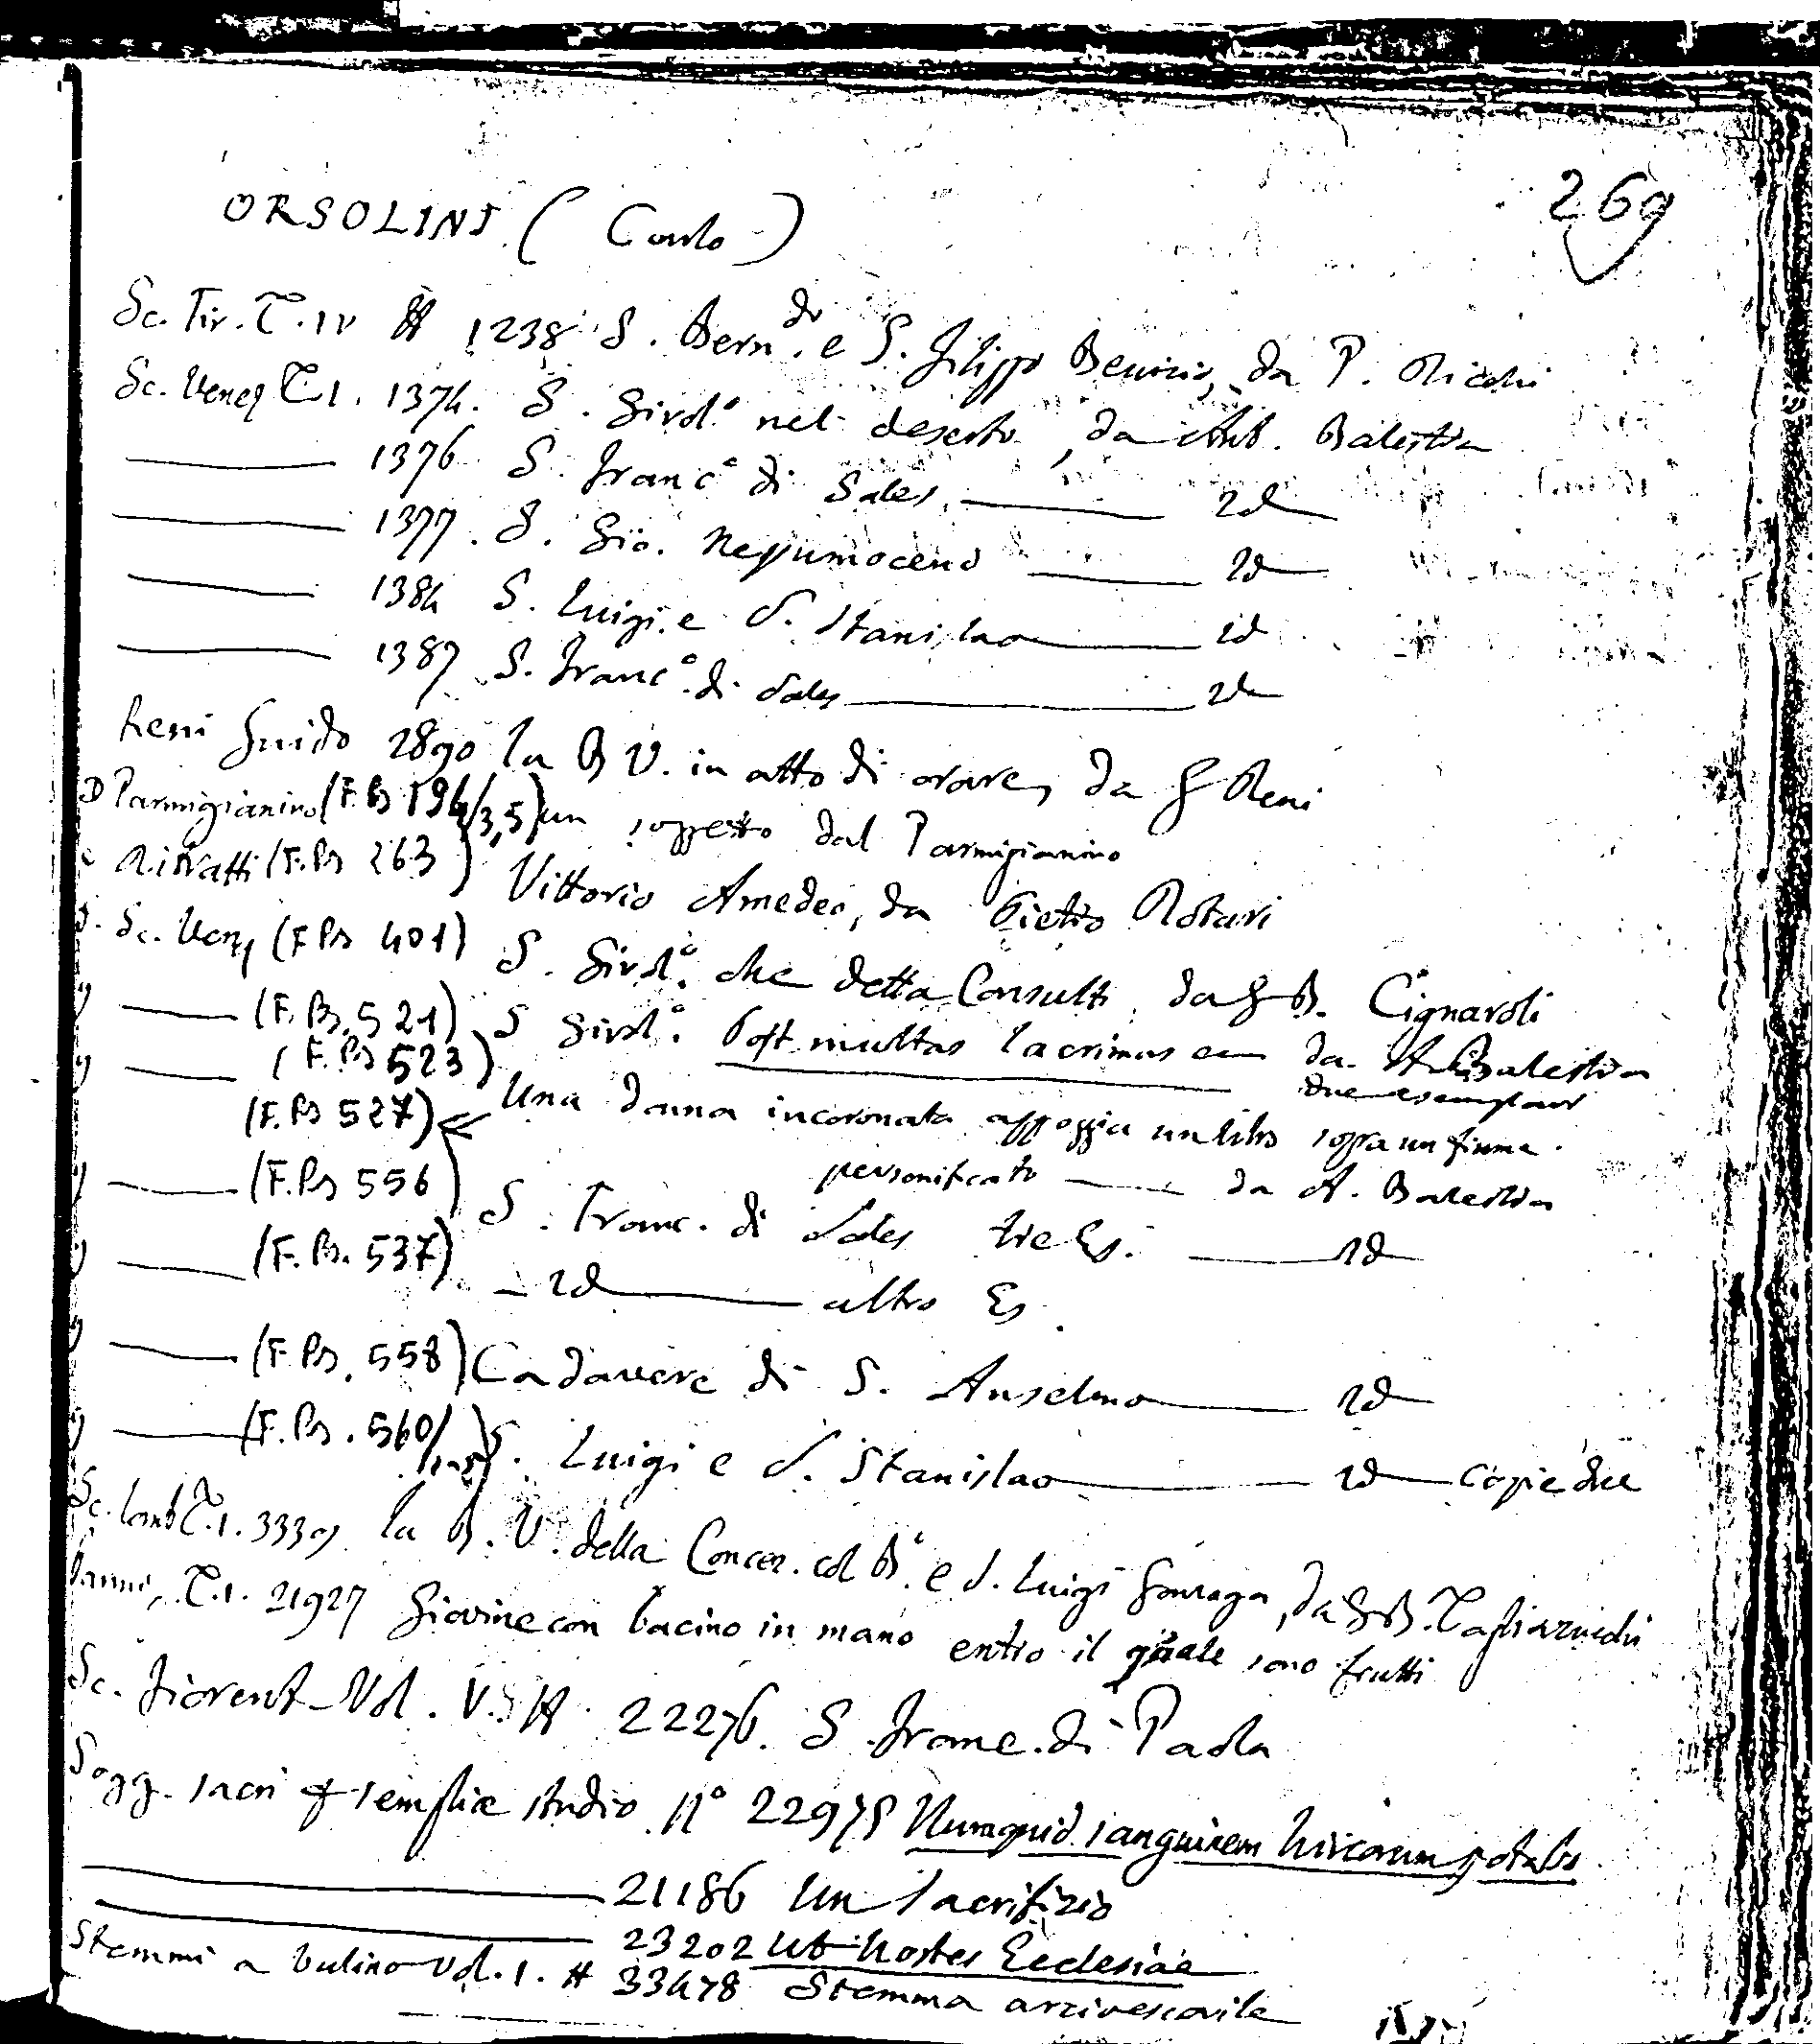 269
ORSOLINI (Carlo)
Sc. Fir. T. IV # 1238 S. Bern.do e S. Filippo Benizio, da P. Ricchi
Sc. Venez T. I. 1374. S. Girol.o nel deserto, da Ant. Balestra
——— 1376 S. Franc.o di Sales ——— Id
——— 1377. S. Gio. Nepumoceno ——— Id
——— 1384 S. Luigi e S. Stanislao ——— Id
——— 1387 S. Franc.o di Sales ——— Id
Reni Guido 2890 la B V. in atto di orare, da G Reni
Parmigianino (F. B 194/3,5) un soggetto dal Parmigianino
Ritratti (F. B 263) Vittorio Amedeo, da Pietro Rotari
Sc. Ven, (F B 401) S. Girol.o che detta Consulti, da G B. Cignaroli
——— (F. B. 521) S Girol.o Post multas lacrimas da A Balestra
——— (F. B 523) due esemplari
(F. B 527) Una donna incoronata appoggia un libro sopra un fiume
personificato ——— da A. Balestra
——— (F. B 556) S. Franc. di Sales tre Es. ——— Id
——— (F. B. 537) – Id ——— altro Es.
——— (F. B. 558) Cadavere di S. Anselmo ——— Id
——— (F. B. 560/1-2) S. Luigi e S. Stanislao ——— Id — copie due
Sc. Lomb T. I. 3339 la B. V. della Concez. col B.o e S. Luigi Gonzaga, da G B.
T. I. 21927 Giovine con bacino in mano entro il quale sono frutti
Sc. Fiorent – Vol. V. # 22276. S. Franc. di Paola
Sogg. sacri & semplice studio N.o 22975 Numquid sanguinem hircorum potabo
——— 21186 Un Sacrifizio
——— 23202 Ut hostes Ecclesiae
Stemmi a bulino Vol. I. # 33478 Stemma arcivescovile